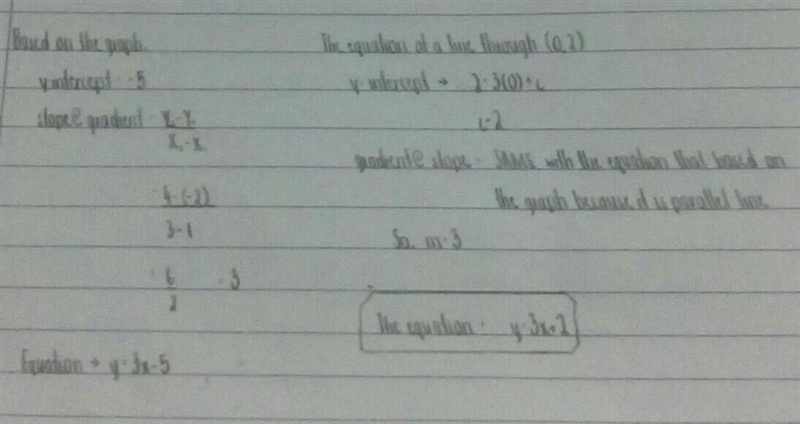 Based on the graph
y intercept = -5
slope@gradient = Y₂ - Y₁
X₂ - X₁
= 4 - (-2)
3 - 1
= 6 = 3
2
Equation → y = 3x - 5
The equation of a line through (0,2)
y intercept → 2 = 3(0) + c
c = 2
gradient@slope = SAME with the equation that based on
the graph because it is parallel line
So, m = 3
The equation = y = 3x + 2